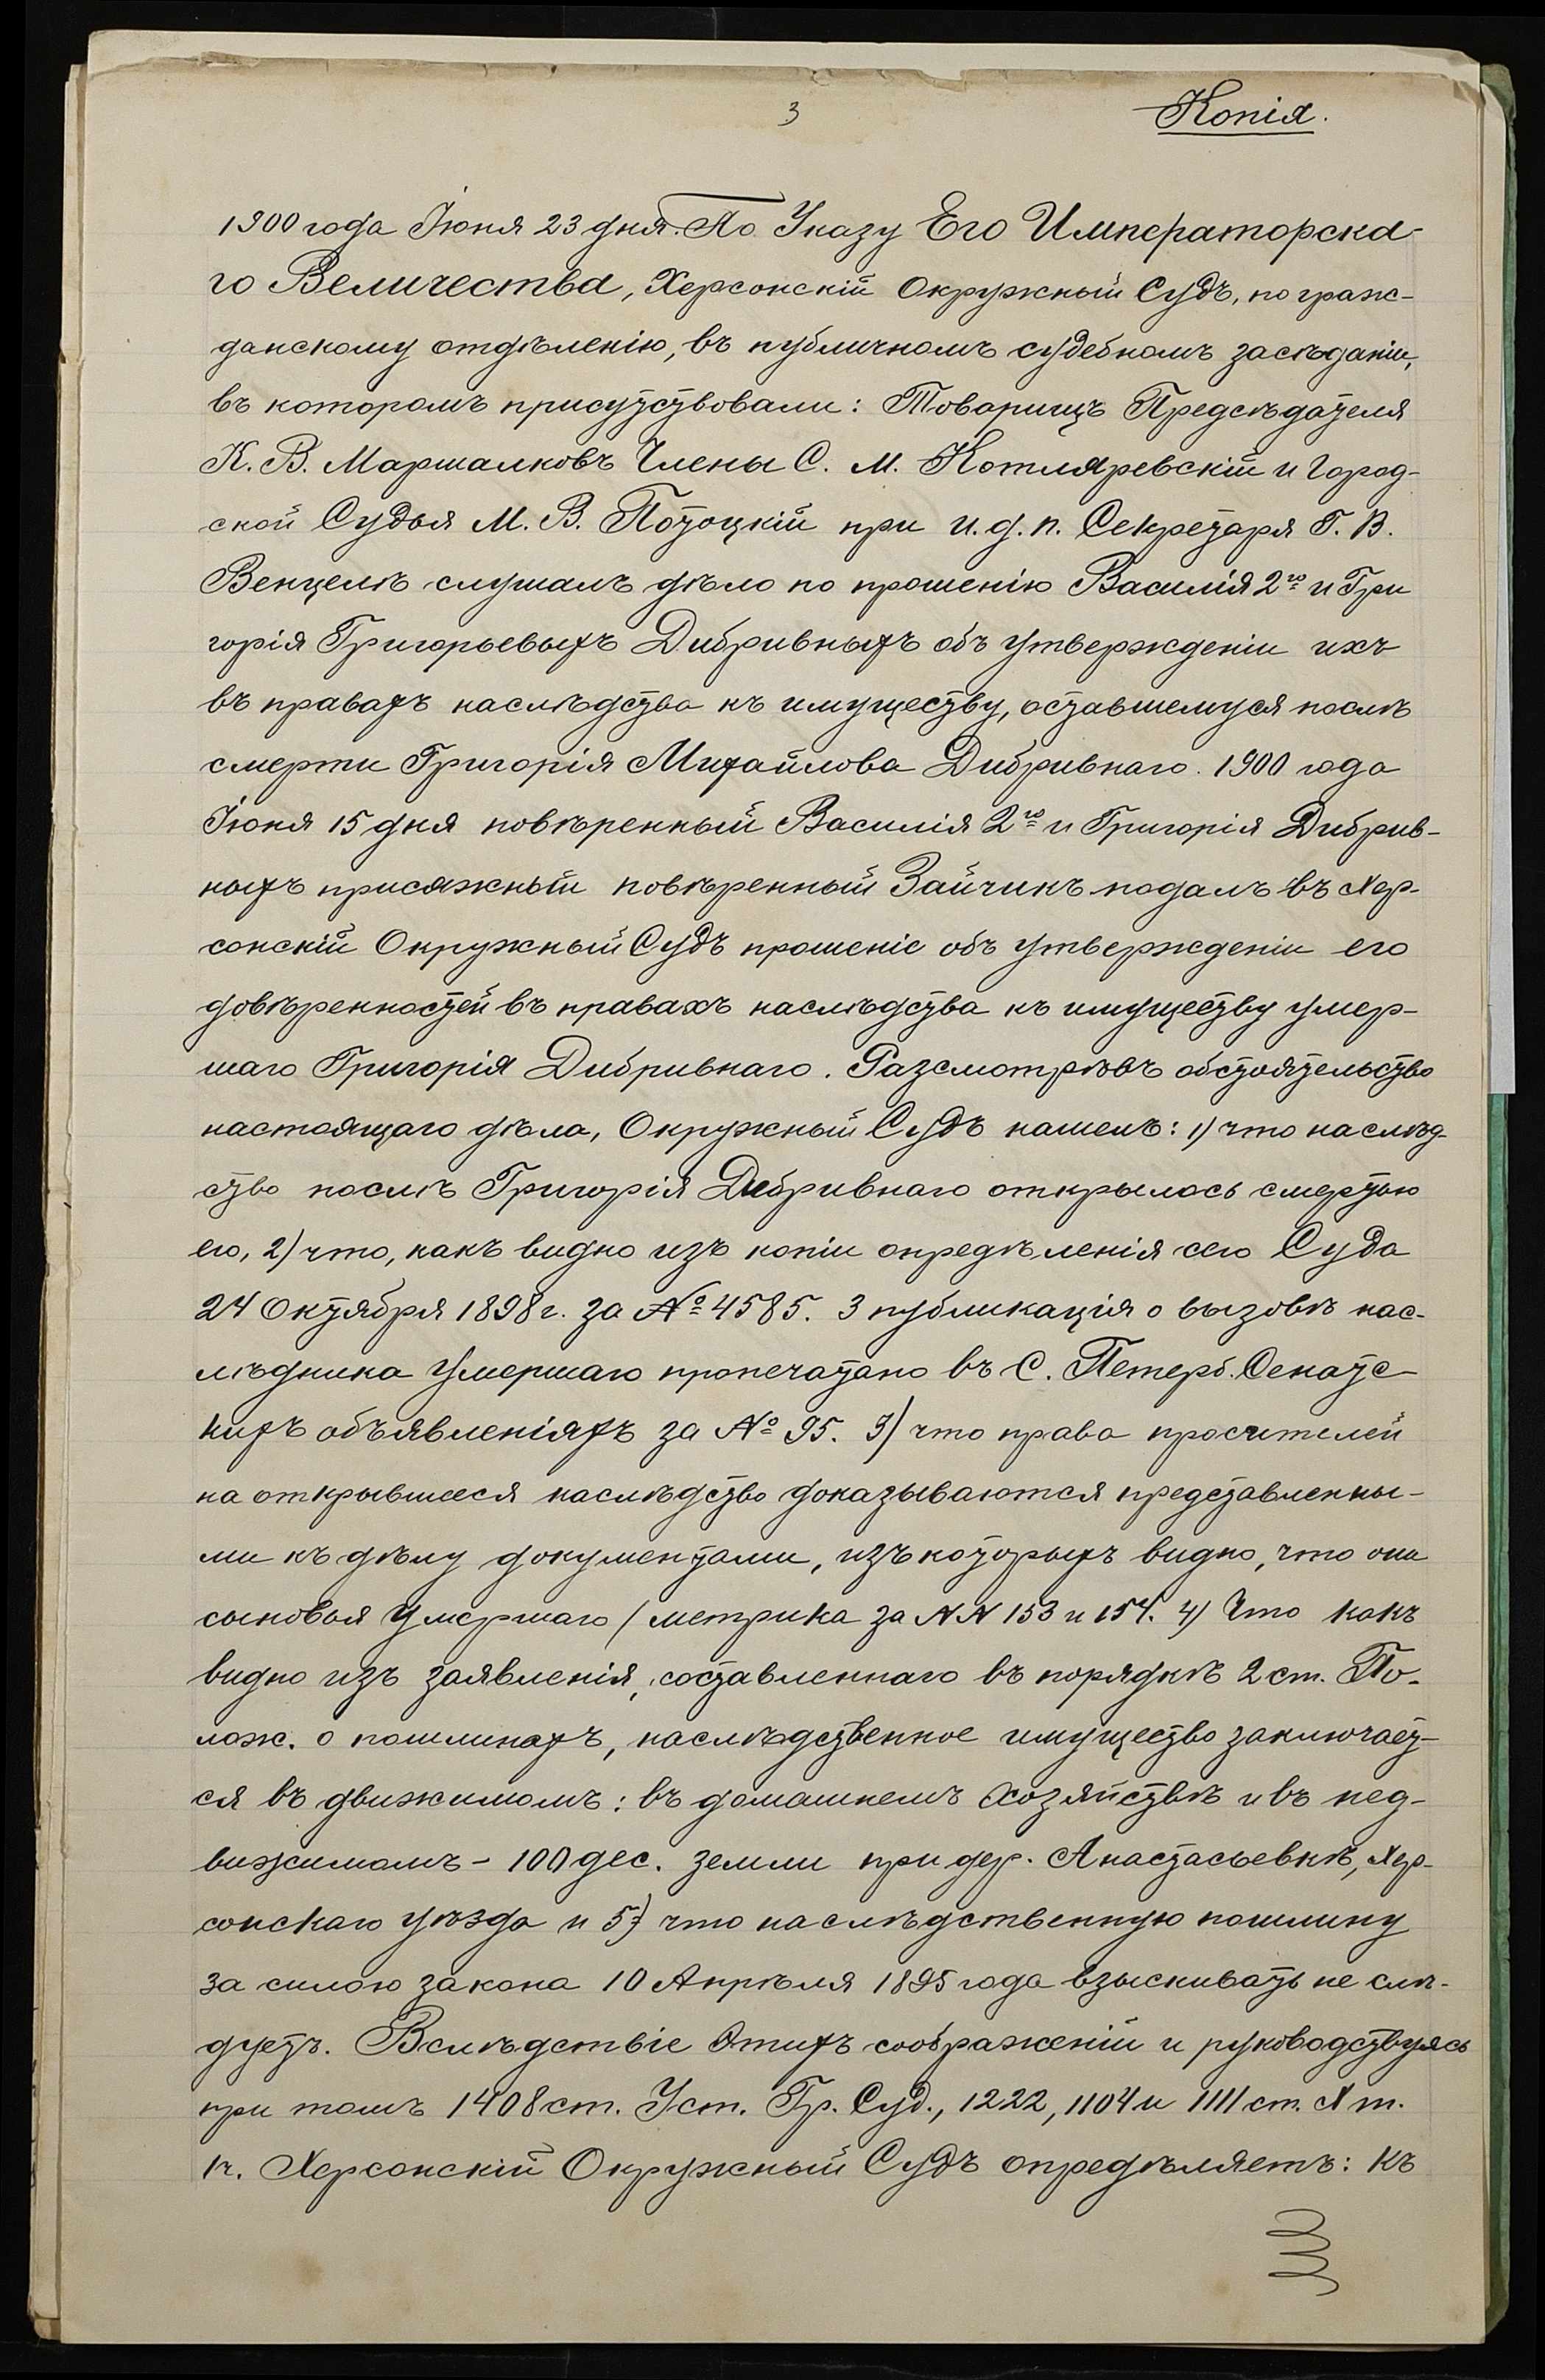 3
Копія.
1900 года Іюня 23 дня. По Указу Его Императорска-
го Величества, Херсонскій Окружный Судъ, по граж-
данскому отдѣленію, въ публичномъ судебномъ засѣданіи,
въ которомъ присутствовали: Товарищъ Предсѣдателя
К. В. Маршалковъ Члены С. М. Котляревскій и Город-
ской Судья М. В. Потоцкій при и. д. п. Секретаря Г. В.
Венцель слушалъ дѣло по прошенію Василія 2го и Гри
горія Григорьевыхъ Дибривныхъ объ утвержденіи ихъ
въ правахъ наслѣдства къ имуществу, оставшемуся послѣ
смерти Григорія Михайлова Дибривнаго. 1900 года
Іюня 15 дня повѣренный Василія 2го и Григорія Дибрив-
ныхъ присяжный повѣренный Зайчикъ подалъ въ Хер-
сонскій Окружный Судъ прошеніе объ утвержденіи его
довѣренностей въ правахъ наслѣдства къ имуществу умер-
шаго Григорія Дибривнаго. Разсмотрѣвъ обстоятельство
настоящаго дѣла, Окружный Судъ нашелъ: 1) что наслѣд-
ство послѣ Григорія Дибривнаго открылось смертью
его, 2) что, какъ видно изъ копіи опредѣленія сего Суда
24 Октября 1898 г. за № 4585. 3 публикація о вызовѣ нас-
лѣдника умершаго пропечатано въ С. Петерб. Сенатс-
кихъ объявленіяхъ за № 95. 3) что права просителей
на открывшееся наслѣдство доказываются представленны-
ми къ дѣлу документами, изъ которыхъ видно, что они
сыновья умершаго (метрика за NN 153 и 154. 4) Что какъ
видно изъ заявленія, составленнаго въ порядкѣ 2 ст. По-
лож. о пошлинахъ, наслѣдственное имущество заключает-
ся въ движимомъ: въ домашнемъ хозяйствѣ и въ нед-
вижимомъ - 100 дес. земли при дер. Анастасьевкѣ, Хер-
сонскаго уѣзда и 5) что наслѣдственную пошлину
за силою закона 10 Апрѣля 1895 года взыскивать не слѣ-
дуетъ. Вслѣдствіе этихъ соображеній и руководствуясь
при томъ 1408 ст. Уст. Гр. Суд., 1222, 1104 и 1111 ст. X т.
1 ч. Херсонскій Окружный Судъ опредѣляетъ: къ